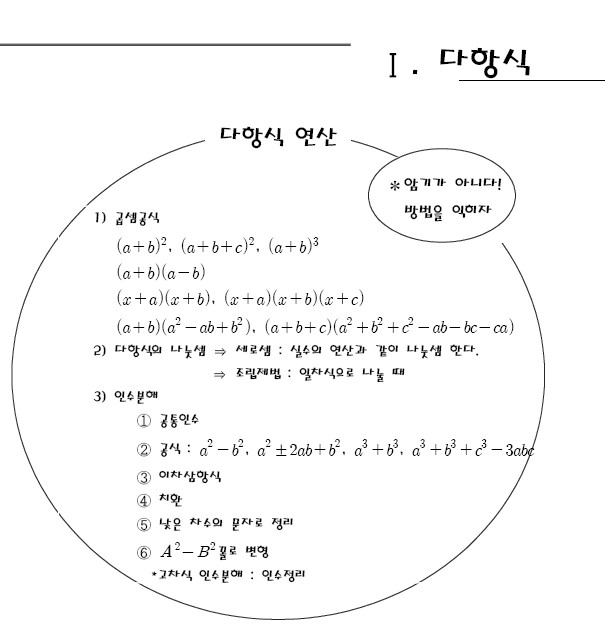 Ⅰ. 다항식
다항식 연산
※암기가 아니다!
방법을 익히자
1) 곱셈공식
(a+b)², (a+b+c)², (a+b)³
(a+b)(a-b)
(x+a)(x+b), (x+a)(x+b)(x+c)
(a+b)(a²-ab+b²), (a+b+c)(a²+b²+c²-ab-bc-ca)
2) 다항식의 나눗셈 ⇒ 세로셈 : 실수의 연산과 같이 나눗셈 한다.
⇒ 조립제법 : 일차식으로 나눌 때
3) 인수분해
① 공통인수
② 공식 : a²-b², a²±2ab+b², a³+b³, a³+b³+c³-3abc
③ 이차삼항식
④ 치환
⑤ 낮은 차수의 문자로 정리
⑥ A²-B²꼴로 변형
*고차식 인수분해 : 인수정리